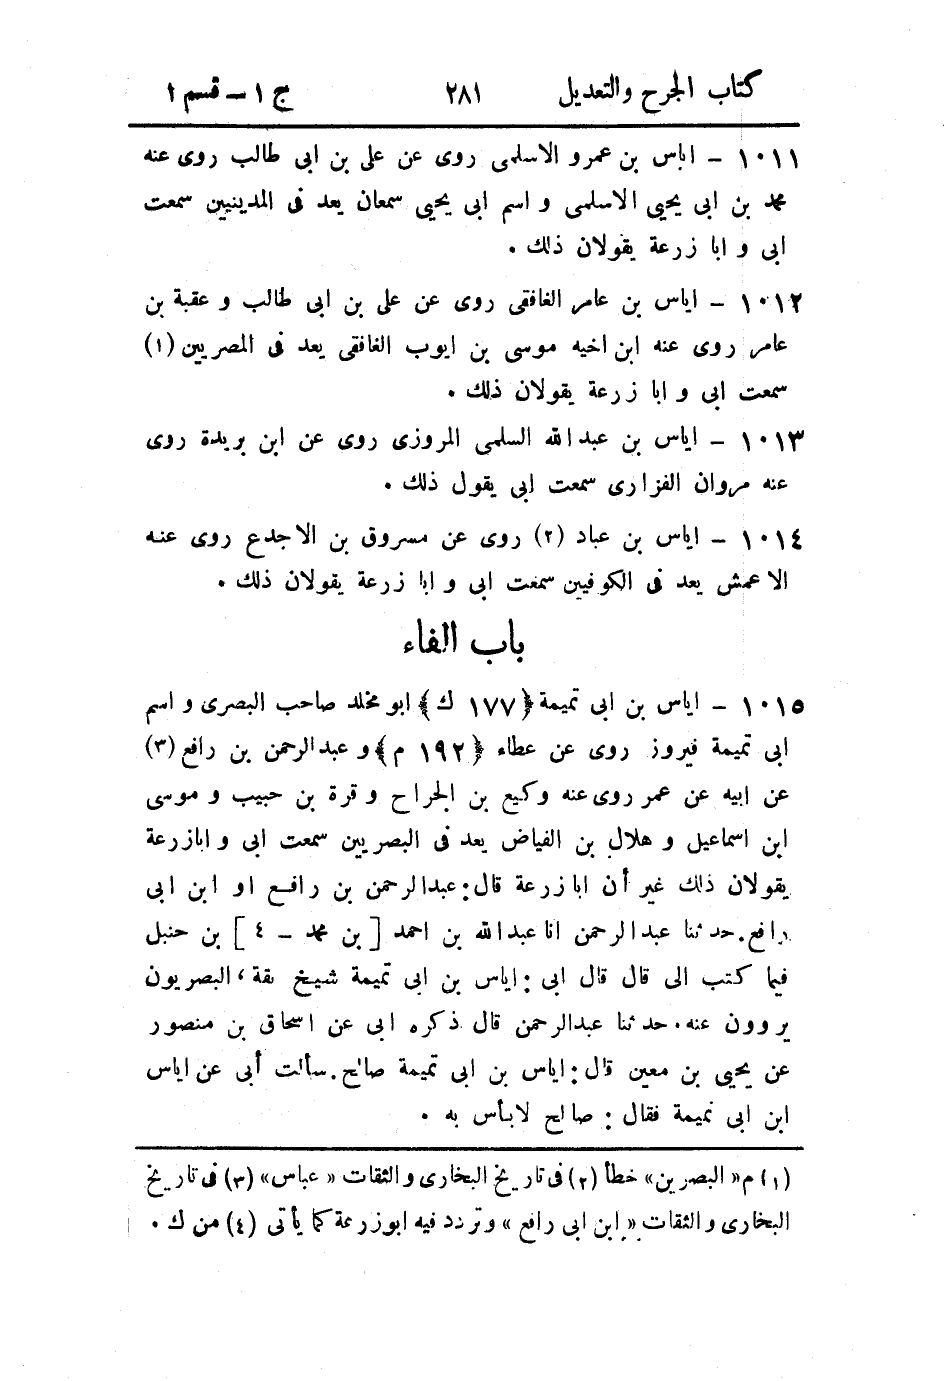 كتاب الجرح والتعديل ٢٨١ ج ١ – قسم ١
١٠١١ – اياس بن عمرو الاسلمى روى عن على بن ابى طالب روى عنه
محمد بن ابى يحيى الاسلمى و اسم ابى يحيى سمعان يعد فى المدينيين سمعت
ابى و ابا زرعة يقولان ذلك .
١٠١٢ – اياس بن عامر الغافقى روى عن على بن ابى طالب و عقبة بن
عامر روى عنه ابن اخيه موسى بن ايوب الغافقى يعد فى المصريين (١)
سمعت ابى و ابا زرعة يقولان ذلك .
١٠١٣ – اياس بن عبد الله السلمى المروزى روى عن ابن بريدة روى
عنه مروان الفزارى سمعت ابى يقول ذلك .
١٠١٤ – اياس بن عباد (٢) روى عن مسروق بن الاجدع روى عنه
الاعمش يعد فى الكوفيين سمعت ابى و ابا زرعة يقولان ذلك .
باب الفاء
١٠١٥ – اياس بن ابى تميمة ﴿١٧٧ ك﴾ ابو مخلد صاحب البصرى و اسم
ابى تميمة فيروز روى عن عطاء ﴿١٩٢ م﴾ و عبدالرحمن بن رافع (٣)
عن ابيه عن عمر روى عنه وكيع بن الجراح و قرة بن حبيب و موسى
ابن اسماعيل و هلال بن الفياض يعد فى البصريين سمعت ابى و ابازرعة
يقولان ذلك غير أن ابا زرعة قال: عبدالرحمن بن رافع او ابن ابى
رافع. حدثنا عبدالرحمن انا عبدالله بن احمد [ بن محمد – ٤ ] بن حنبل
فيما كتب الى قال قال ابى : اياس بن ابى تميمة شيخ ثقة، البصريون
يروون عنه. حدثنا عبدالرحمن قال ذكره ابى عن اسحاق بن منصور
عن يحيى بن معين قال: اياس بن ابى تميمة صالح. سألت أبى عن اياس
ابن ابى تميمة فقال : صالح لا بأس به .
(١) م « البصرين » خطأ (٢) فى تاريخ البخارى و الثقات « عباس » (٣) فى تاريخ
البخارى و الثقات « ابن ابى رافع » و تردد فيه ابوزرعة كما يأتى (٤) من ك .